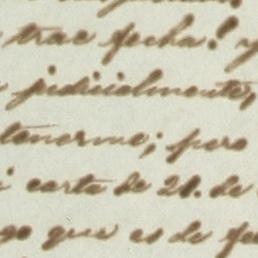 trae fecha! y
judicialmente,
tenerme; pero
carta de 21. de
go que es de fe